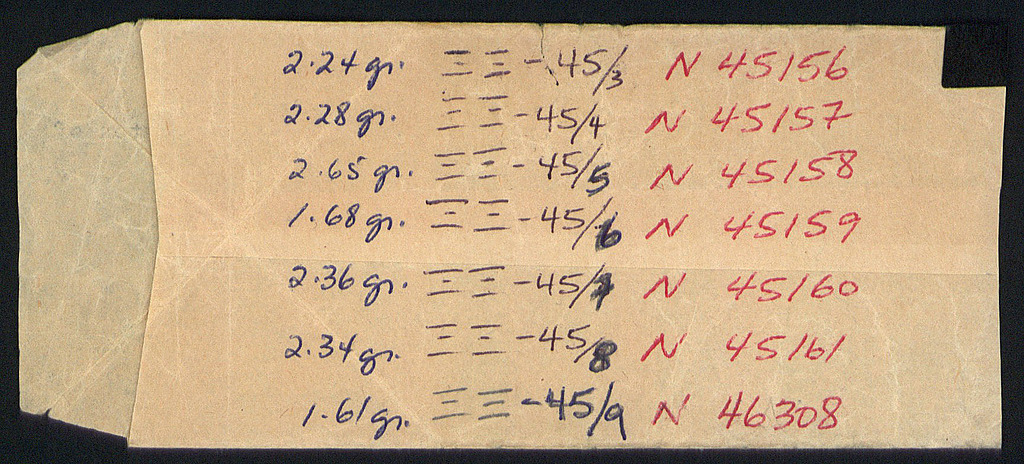 2.24 gr. ΞΞ-45/3 N 45156
2.28 gr. ΞΞ-45/4 N 45157
2.65 gr. ΞΞ-45/5 N 45158
1.68 gr. ΞΞ-45/6 N 45159
2.36 gr. ΞΞ-45/7 N 45160
2.34 gr. ΞΞ-45/8 N 45161
1.61 gr. ΞΞ-45/9 N 46308